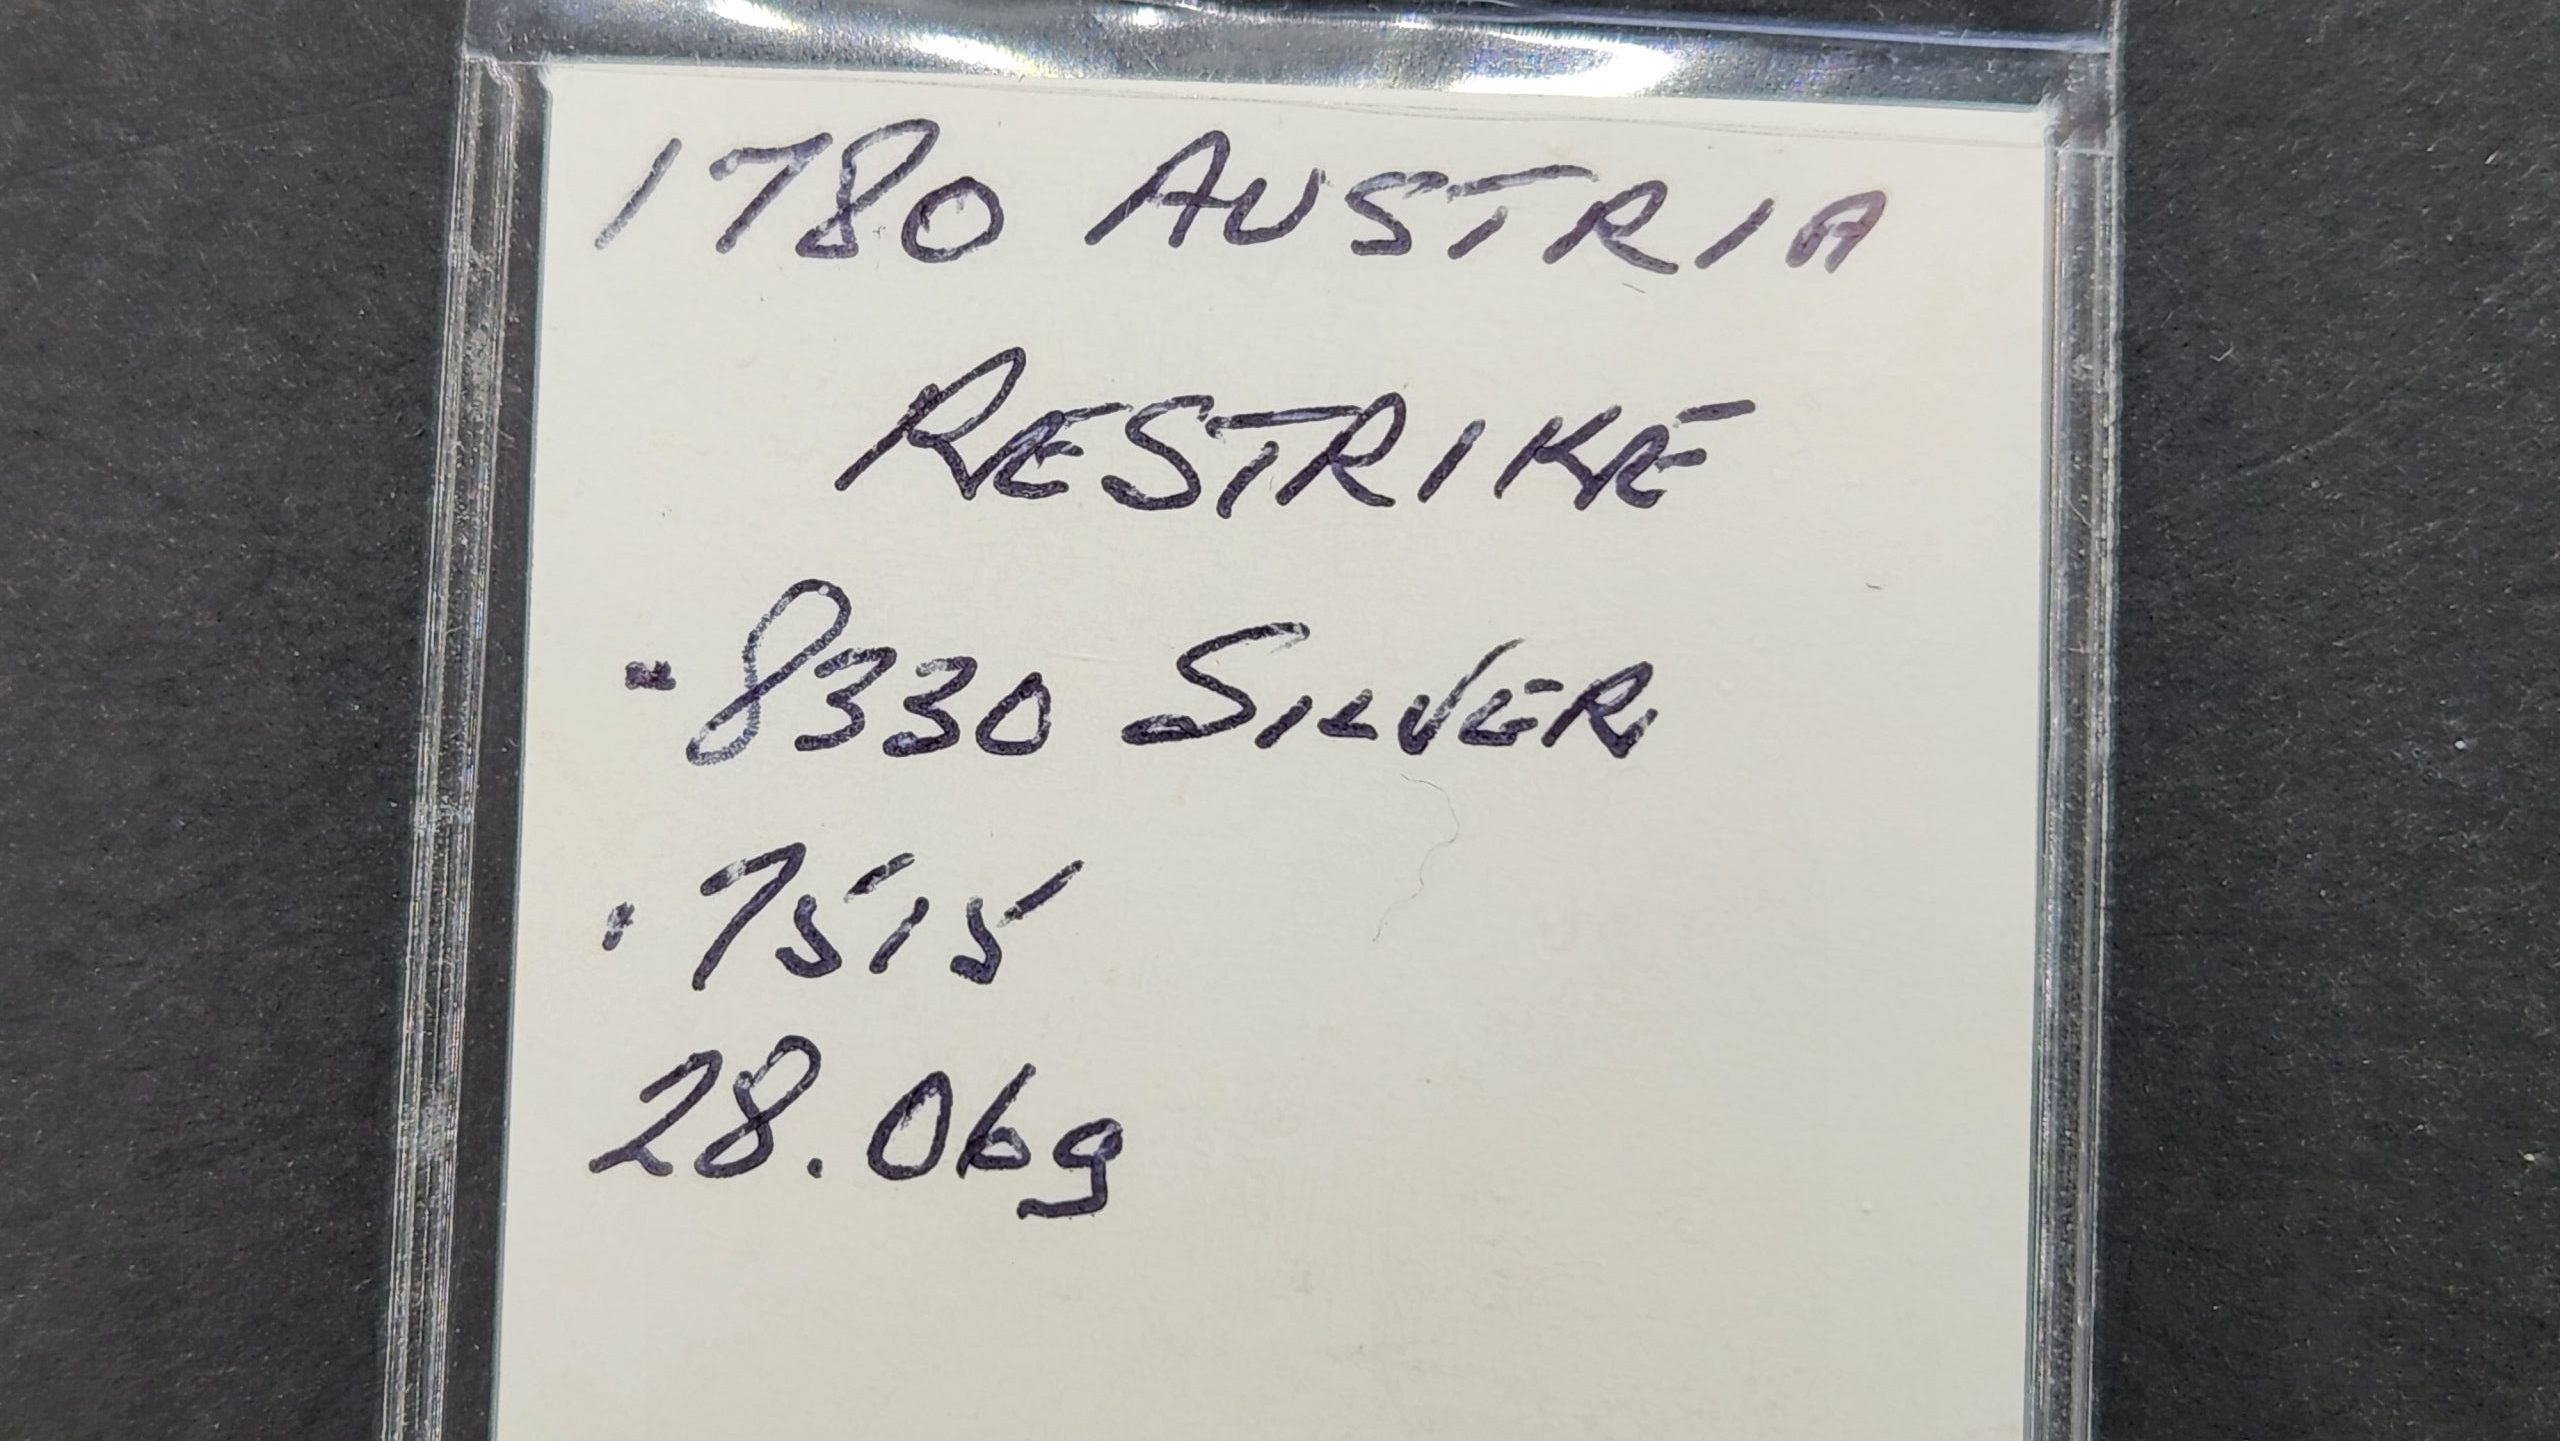 1780 AUSTRIA
RESTRIKE
.8330 SILVER
.7515
28.06g